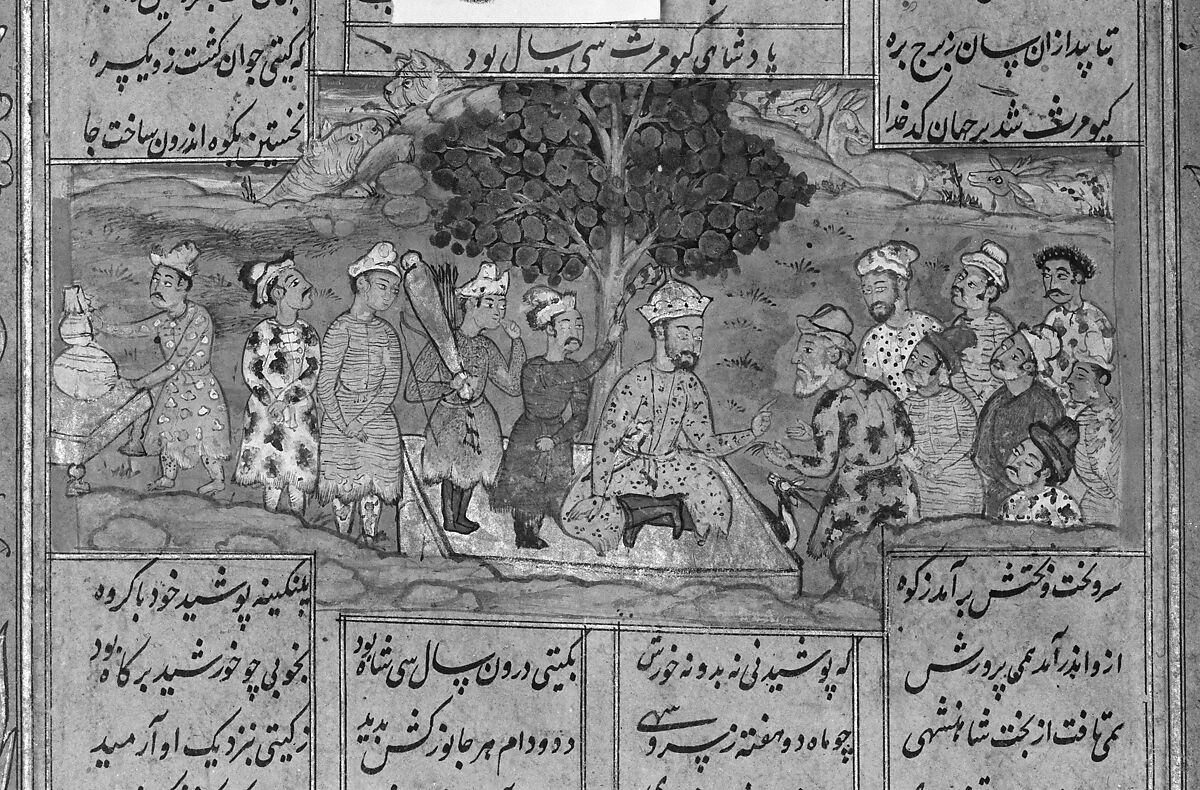 پادشاهی کیومرث سی سال بود
بتابید ازان سان ز برج بره
که گیتی جوان گشت زو یکسره
کیومرث شد بر جهان کدخدا
نخستین بکوه اندرون ساخت جا
سر و تخت و بختش برآمد ز کوه
پلنگینه پوشید خود با گروه
ازو اندر آمد همی پرورش
که پوشیدنی نه بد و نه خورش
بگیتی درون سال سی شاه بود
بخوبی چو خورشید بر گاه بود
همی تافت از بخت شاهنشهی
چو ماه دو هفته ز سرو سهی
دد و دام هر جانور کش بدید
ز گیتی نزدیک او آرمید